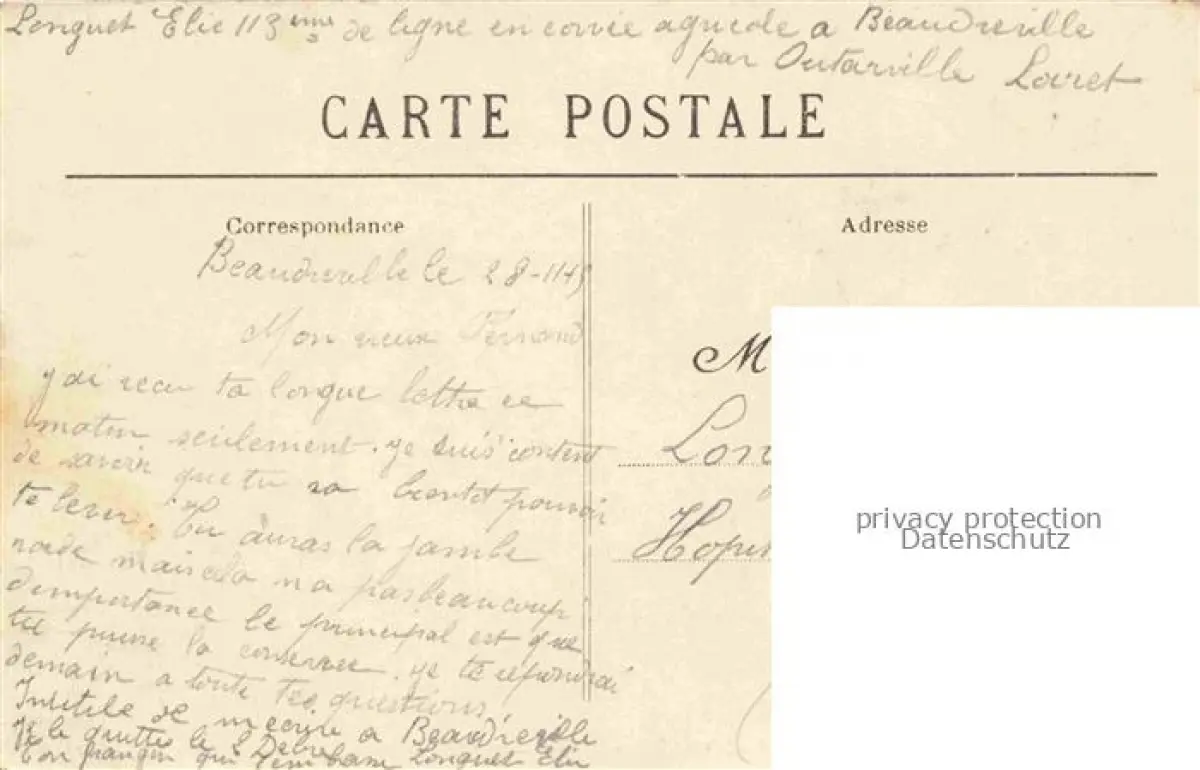 Longuet Elie 113 eme de ligne en corvée agricole a Beaudreville
par Outarville Loiret
CARTE POSTALE
Correspondance
Adresse
Beaudreville le 28-11-15
Mon vieux Fernand
M
j'ai recu ta longue lettre ce
matin seulement. je suis content
Lon
de savoir que tu va bientot pouvoir
te lever. Tu auras la jambe
Hopi
privacy protection
Datenschutz
raide mais cela n a pas beaucoup
d'importance le principal est que
tu puisse la conserver. je te repondrai
demain a toute tes questions
Inutile de m'ecrire a Beaudreville
je le quitte le
Ton frangin qui t'embrasse Longuet Elie